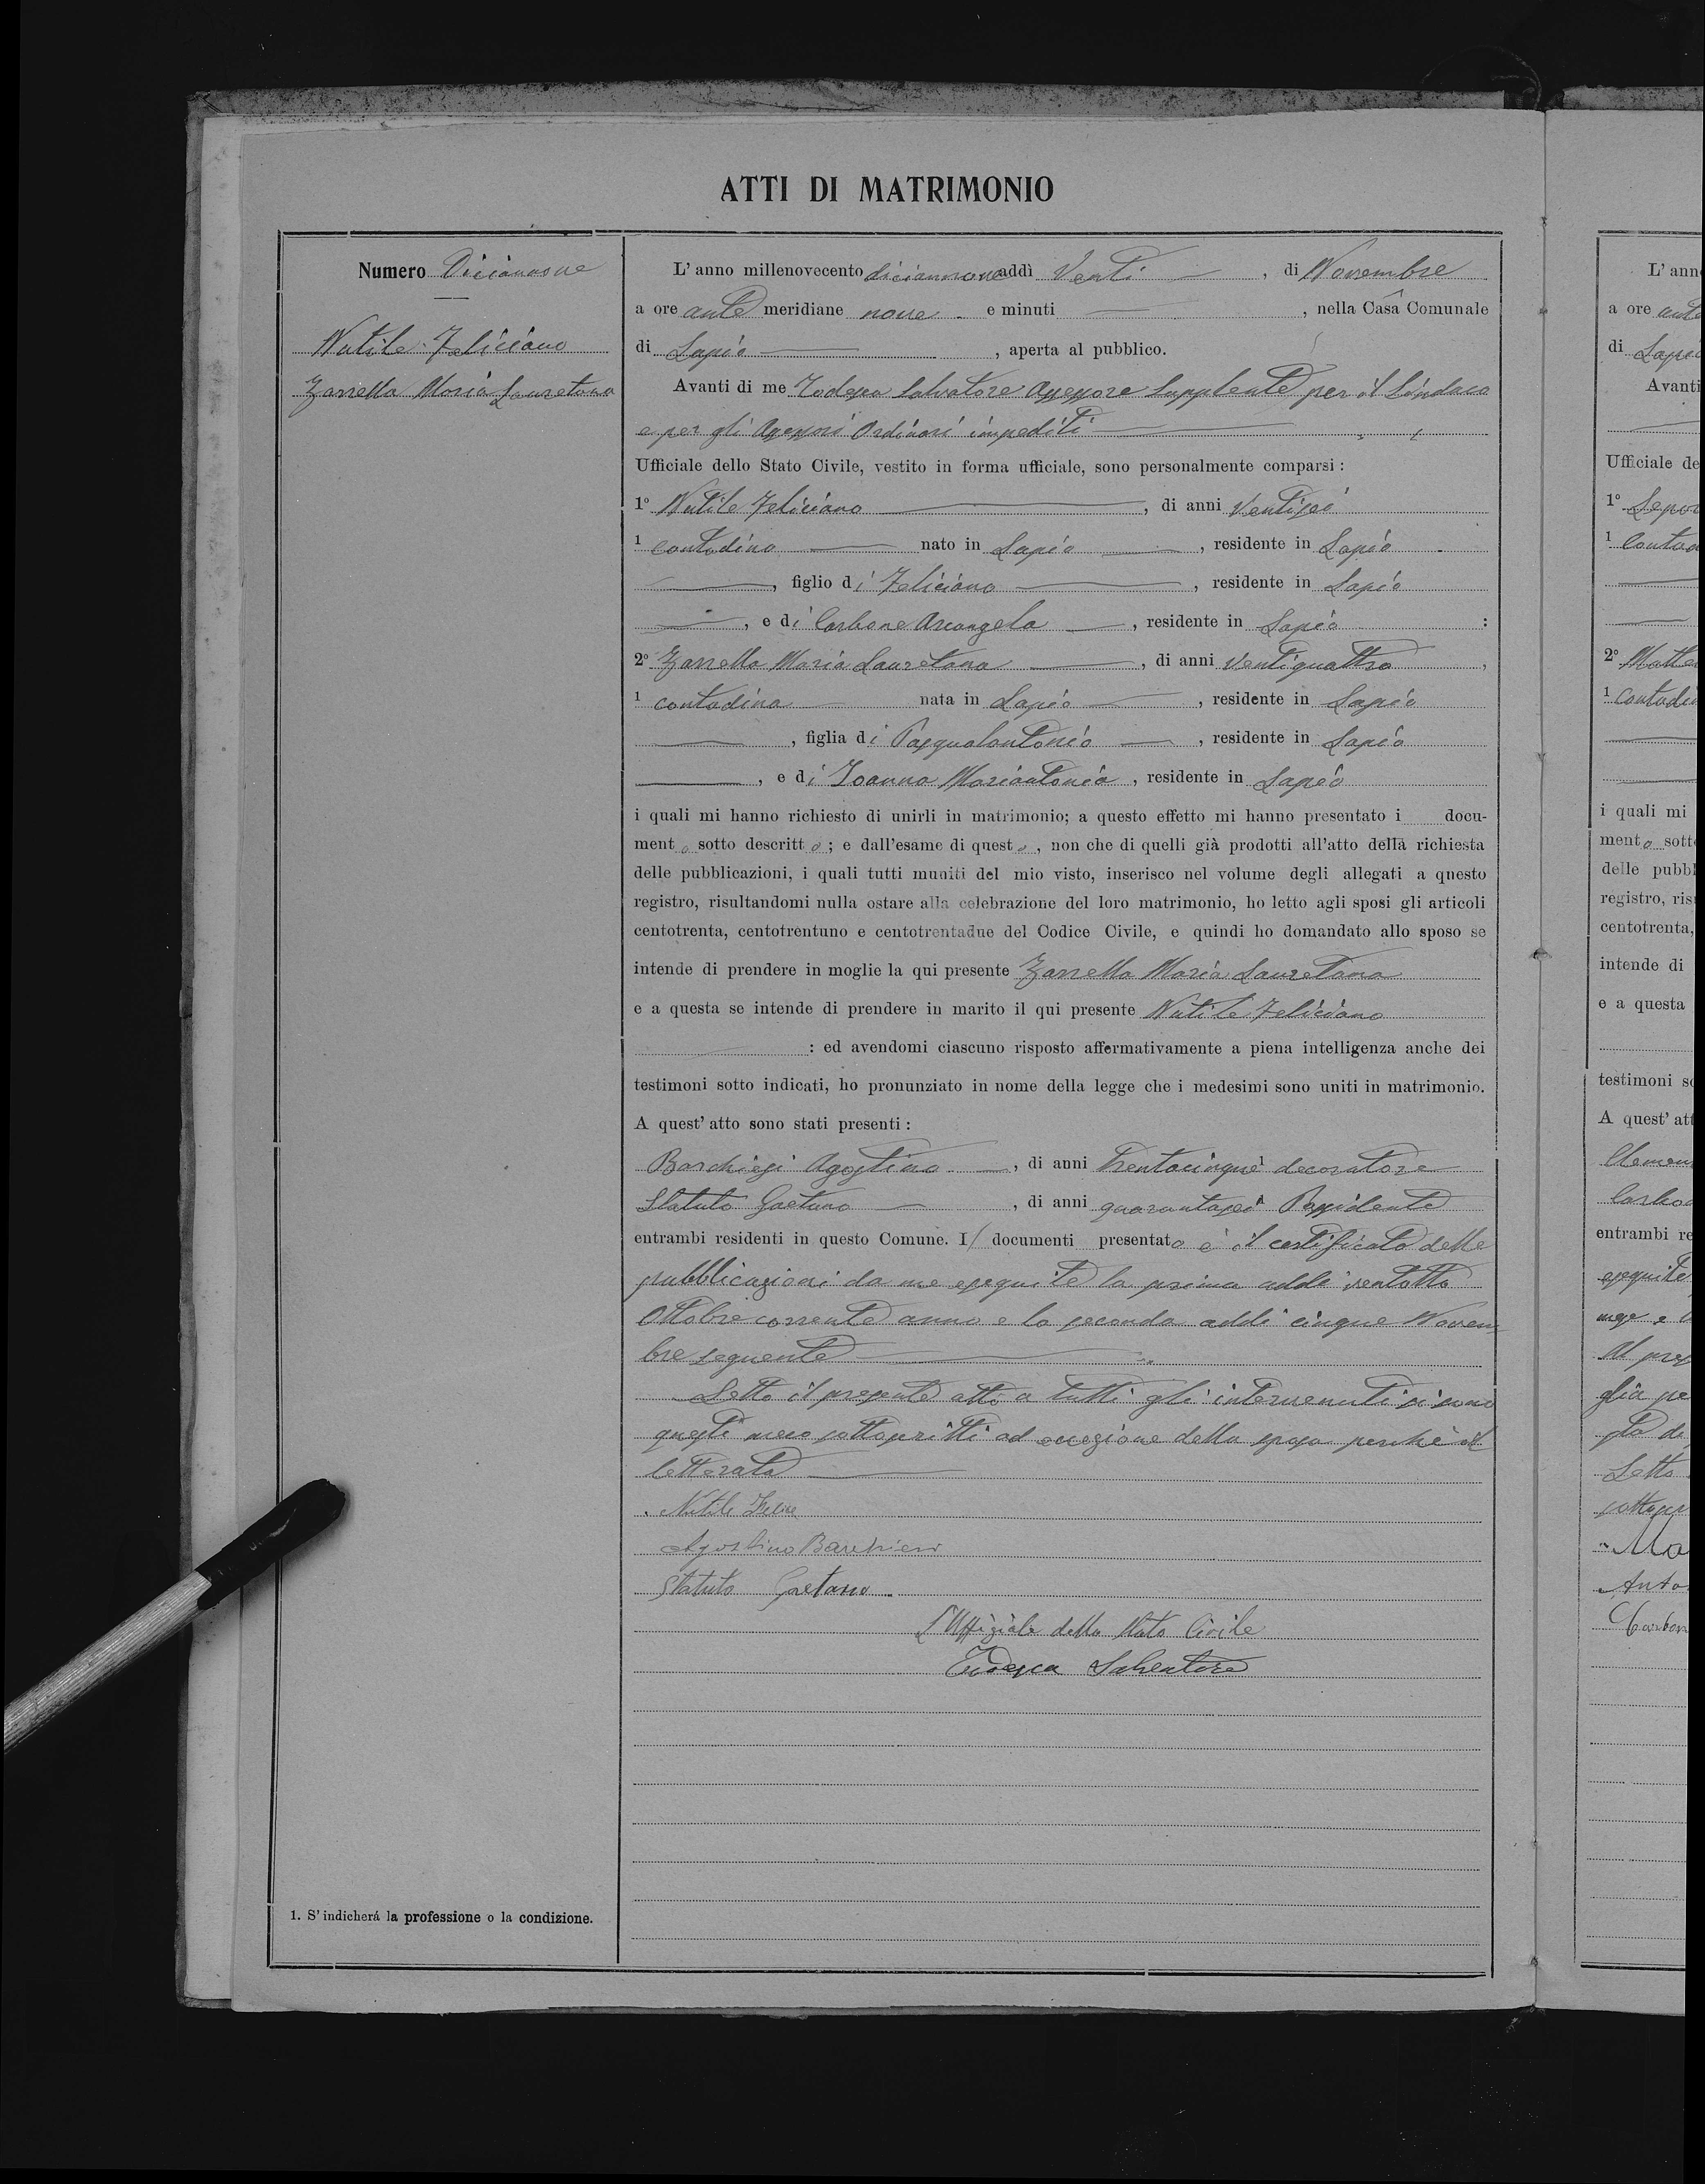 ATTI DI MATRIMONIO
Numero Diciannove
Nutile Feliciano
Zarrella Maria Lauretana
L' anno millenovecento diciannove addì Venti, di Novembre
a ore ante meridiane nove e minuti, nella Casa Comunale
di Lapio, aperta al pubblico.
Avanti di me Todesca Salvatore Assessore Supplente per il Sindaco
e per gli Assessori Ordinari impediti
Ufficiale dello Stato Civile, vestito in forma ufficiale, sono personalmente comparsi :
1º Nutile Feliciano, di anni Ventisei
1 contadino nato in Lapio, residente in Lapio
, figlio di Feliciano, residente in Lapio
, e di Carbone Arcangela, residente in Lapio :
2º Zarrella Maria Lauretana, di anni Ventiquattro,
1 contadina nata in Lapio, residente in Lapio
, figlia di Pasqualantonio, residente in Lapio
, e di Ioanna Mariantonia, residente in Lapio
i quali mi hanno richiesto di unirli in matrimonio; a questo effetto mi hanno presentato i docu-
mento sotto descritto ; e dall'esame di questo , non che di quelli già prodotti all'atto della richiesta
delle pubblicazioni, i quali tutti muniti del mio visto, inserisco nel volume degli allegati a questo
registro, risultandomi nulla ostare alla celebrazione del loro matrimonio, ho letto agli sposi gli articoli
centotrenta, centotrentuno e centotrentadue del Codice Civile, e quindi ho domandato allo sposo se
intende di prendere in moglie la qui presente Zarrella Maria Lauretana
e a questa se intende di prendere in marito il qui presente Nutile Feliciano
: ed avendomi ciascuno risposto affermativamente a piena intelligenza anche dei
testimoni sotto indicati, ho pronunziato in nome della legge che i medesimi sono uniti in matrimonio.
A quest' atto sono stati presenti :
Barchiesi Agostino, di anni Trentacinque 1 decoratore
Statuto Gaetano, di anni quarantasei Possidente
entrambi residenti in questo Comune. I documenti presentato è il certificato delle
pubblicazioni da me eseguite la prima addi ventotto
Ottobre corrente anno e la seconda addi cinque Novem
bre seguente
Letto il presente atto a tutti gli intervenuti si sono
questi meco sottoscritti ad eccezione della sposa perchè il
letterata
Nutile Felice
Agostino Barchiesi
Statuto Gaetano
L'Uffiziale dello Stato Civile
Todesca Salvatore
1. S' indicherá la professione o la condizione.
L' ann
a ore ante
di Lapio
Avanti
Ufficiale de
1º
1 Contad
2º
1 Contadin
i quali mi
mento sott
delle pubbl
registro, ris
centotrenta,
intende di
e a questa
testimoni so
A quest' att
entrambi re
eseguite
glia pe
Letto
Ma
Anto
Carbon